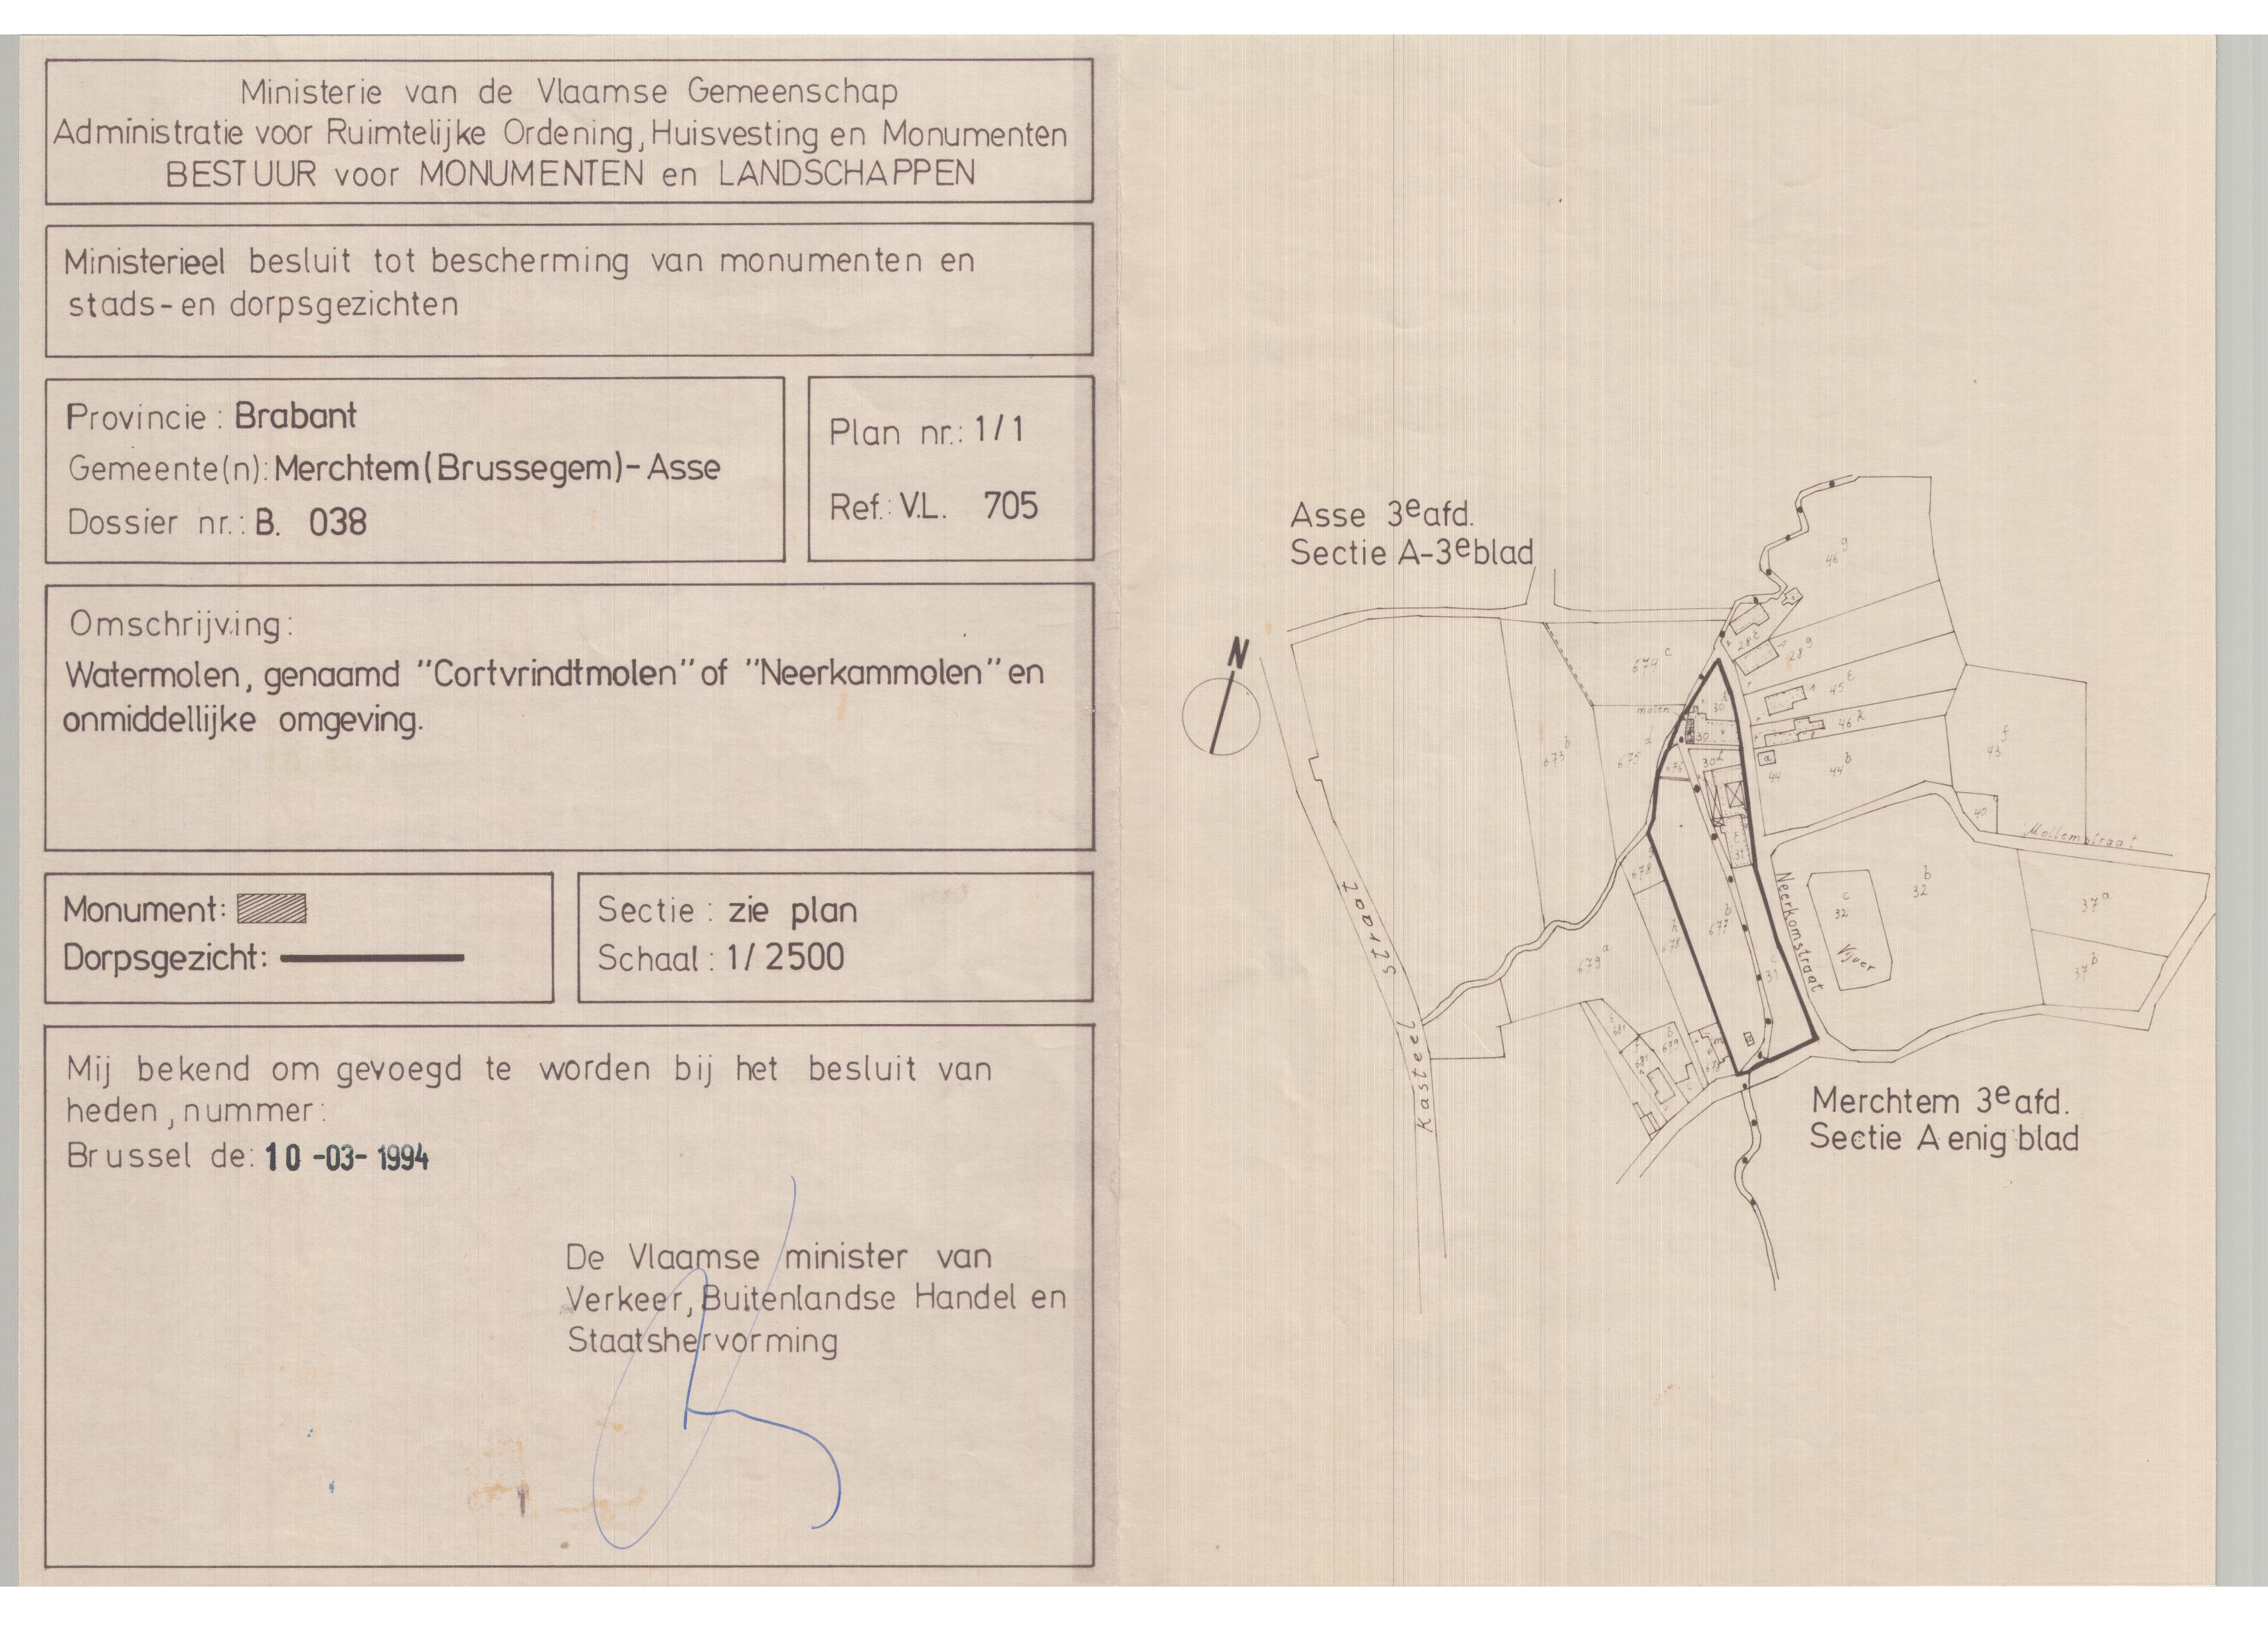 Ministerie van de Vlaamse Gemeenschap
Administratie voor Ruimtelijke Ordening, Huisvesting en Monumenten
BESTUUR voor MONUMENTEN en LANDSCHAPPEN
Ministerieel besluit tot bescherming van monumenten en
stads-en dorpsgezichten
Provincie: Brabant
Gemeente(n): Merchtem (Brussegem)-Asse
Dossier nr.: B. 038
Plan nr.: 1/1
Ref.: V.L. 705
Omschrijving:
Watermolen, genaamd "Cortvrindtmolen" of "Neerkammolen" en
onmiddellijke omgeving.
Monument:
Dorpsgezicht:
Sectie: zie plan
Schaal: 1/2500
Mij bekend om gevoegd te worden bij het besluit van
heden, nummer:
Brussel de: 10-03-1994
De Vlaamse minister van
Verkeer, Buitenlandse Handel en
Staatshervorming
Asse 3e afd.
Sectie A-3e blad
N
46 g
674 c
28 g
45 t
molen
30
673 b
675 d
676
44
44 b
43 f
40
Mollemstraat
31
678
Neerkomstraat
32 c
Vijver
32 b
37 a
37 b
677 b
679 a
Kasteel
Merchtem 3e afd.
Sectie A enig blad